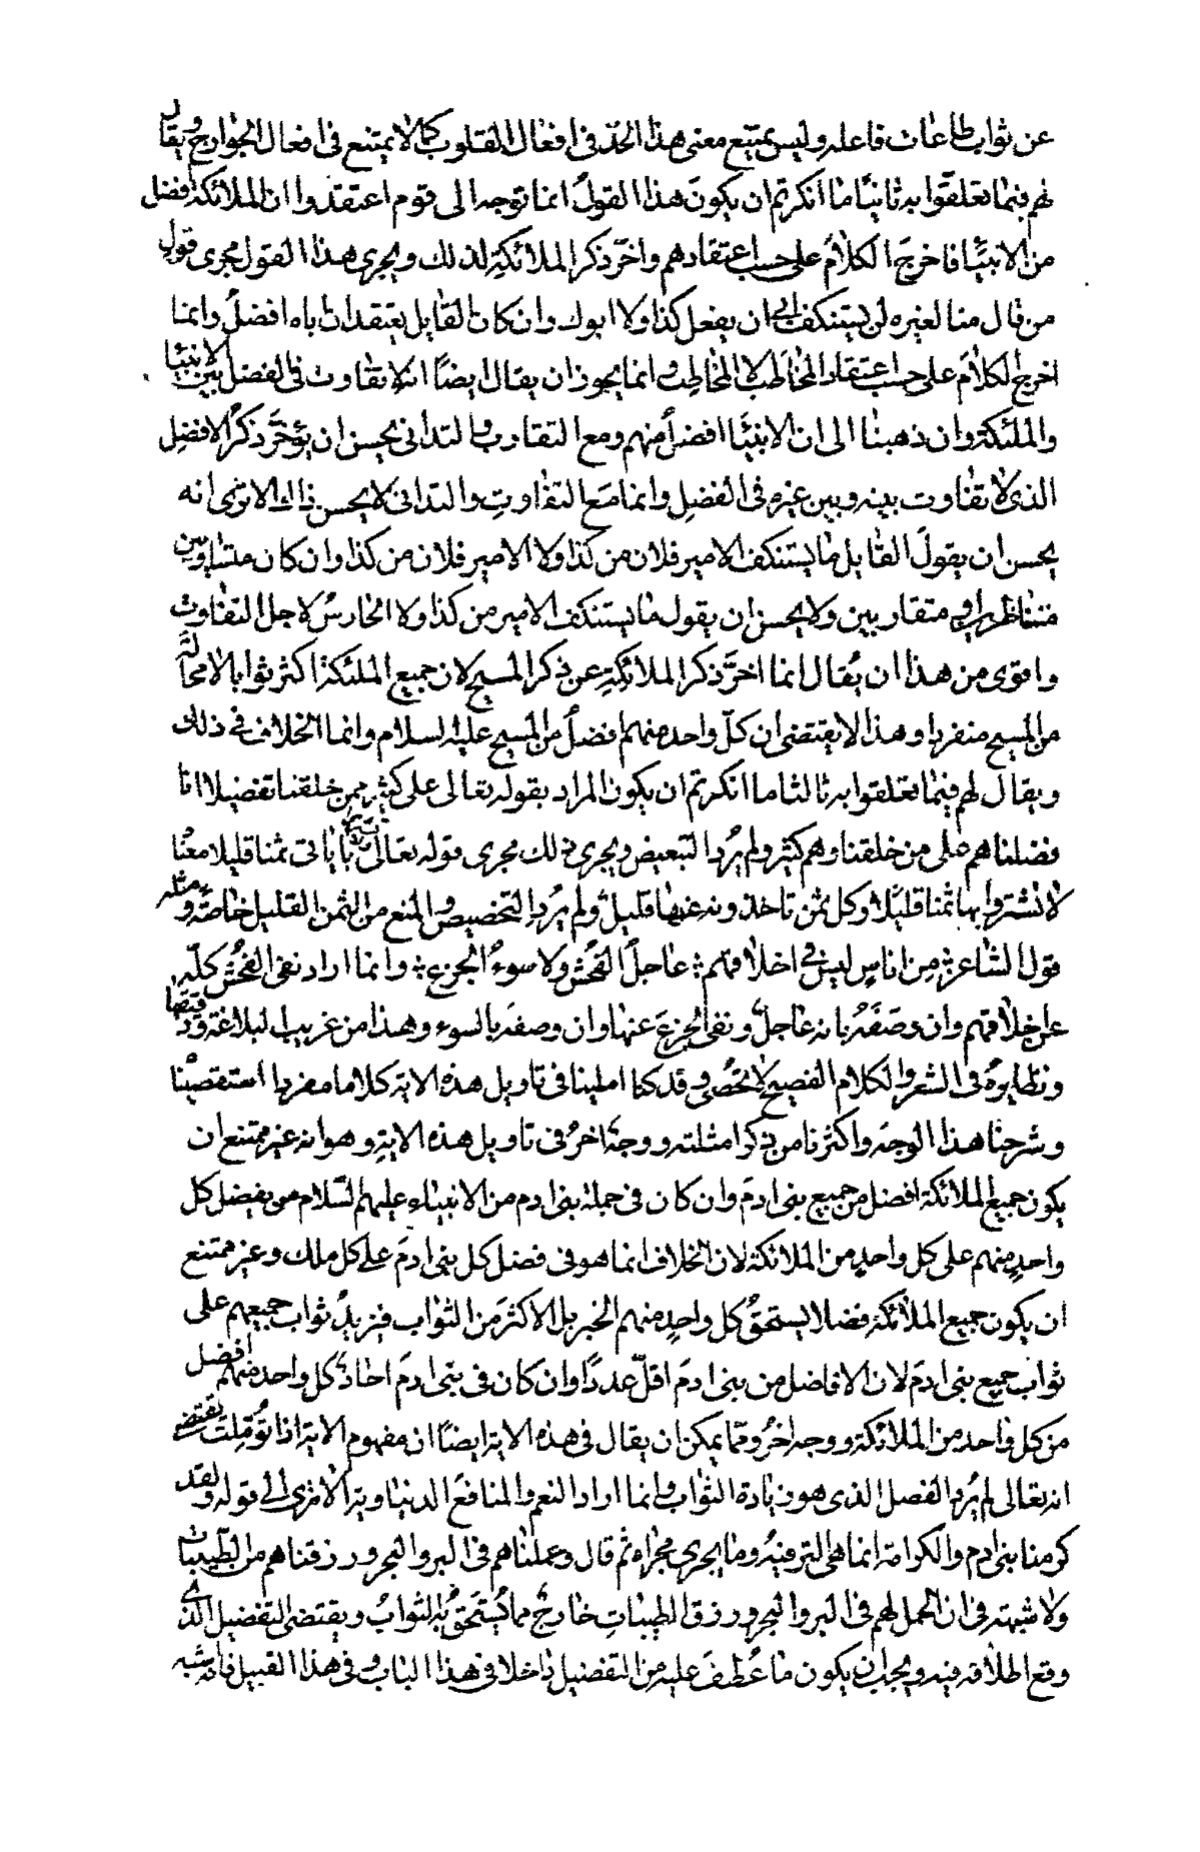 عن ثواب طاعات فاعله وليس يمتنع معنى هذا الحد في افعال القلوب كما لا يمتنع في افعال الجوارح ويقال
لهم فيما تعلقوا به ثانيًا ما انكرتم ان يكونَ هذا القولُ انما توجه الى قوم اعتقدوا ان الملائكة افضل
من الانبيَّا فاخرجَ الكلامَ على حسب اعتقادهم واخّر ذكر الملائكةِ لذلك ويجرى هذا القول مجرى قولِ
من قال منا لغيره لن يستنكف ابي ان يفعل كذا ولا ابوك وان كان القايل يعتقد ان اباه افضلُ وانما
اخرج الكلامَ على حسب اعتقاد المخاطَب لا المخاطِب وانما يجوز ان يقال ايضًا انه لا تفاوت في الفضل بين الانبيَّا
والملئكة وان ذهبنا الى ان الانبيَّا افضلُ منهم ومع التقارب والتدانى يحسن ان يؤخَّر ذكرُ الافضلِ
الذى لا تفاوت بينه وبين غيره في الفضلِ وانما مَع التفاوتِ والتدانى لا يحسن ذلك الا ترى انه
يحسن ان يقولَ القايل ما يستنكف الامير فلان من كذا ولا الامير فلان من كذا وان كان متساويين
متناظرين او متقاربين ولا يحسن ان يقول ما يستنكف الامير من كذا ولا الحارسُ لاجل التفاوت
واقوى من هذا ان يُقال انما اخرَّ ذكر الملائكةِ عن ذكر المسيح لان جميع الملئكة اكثر ثوابا لا محالَّة
من المسيح منفردا وهذا لا يقتضى ان كلّ واحد منهم افضلُ من المسيح عليه السلام وانما الخلاف في ذلك
ويقال لهم فيما تعلقوا به ثالثا ما انكرتم ان يكون المراد بقوله تعالى على كثير ممن خلقنا تفضيلا انا
فضلناهم على من خلقنا وهم كثير ولم يُرد التبعيض ويجرى ذلك مجرى قوله تعالى ولا تشتروا باياتى ثمنا قليلا معنا
لا تشتروا بها ثمنا قليلا وكل ثمن تاخذونه عنها قليل ولم يُرد التخصيص والمنع من الثمن القليل خاصّه ومثله
قول الشاعر من اناسٍ ليسَ في اخلاقهم عاجلُ الفُحش ولا سوءُ الجزع وانما اراد نفى الفُحش كلّه
عن اخلاقهم وان وصَفَهُ بانه عاجل ونفى الجزعَ عنها وان وصفَه بالسوء وهذا من غريب البلاغة
ونظايرهُ في الشعر والكلام الفصيح لا تحصُى وقد كنا املينا في تاويل هذه الاية كلاما مفردا استقصينا
وشرحنا هذا الوجهَ واكثرنا من ذكر امثلته ووجهٌ اخرُ في تاويل هذه الايةِ وهو انه غير ممتنع ان
يكون جميع الملائكة افضل من جميع بنى ادمَ وان كان في جملة بنى ادم من الانبياء عليهم السّلام من يفضل كل
واحدٍ منهم على كل واحدٍ من الملائكة لان الخلاف انما هو في فضل كل بنى ادمَ على كل ملك وغير ممتنع
ان يكون جميع الملائكة فضلا يستحقُ كل واحدٍ منهم الجزيل الاكثرَ من الثواب فيزيدُ ثواب جميعهم على
ثواب جميع بنى ادمَ لان الافاضل من بنى ادمَ اقلّ عددًا وان كان في بنى ادمَ احادٌ كل واحد منهم افضل
من كل واحد من الملائكة ووجه اخرُ ومّا يمكن ان يقال في هذه الاية ايضًا ان مفهوم الاية اذا تُوُمِلت يقتضى
انه تعالى لم يُرد الفضل الذى هو زيادة الثواب وانما اراد النعم والمنافعَ الدنياوية الا ترى الى قوله ولقد
كرمنا بنى ادم والكرامة انما هى الترفيهُ وما يجرى مجراه ثم قال وحملناهم في البر والبحر ورزقناهم من الطيبات
ولا شبهة في ان الحمل لهم في البر والبحر ورزق الطيباتِ خارجٌ مما يُستَحقُ به الثوابُ ويقتضى التفضيل الذى
وقع اطلاقه فيه ويجب ان يكون ما عُطفَ عليه من التفضيل داخلا في هذا الباب وفي هذا القبيل فانه اشبه